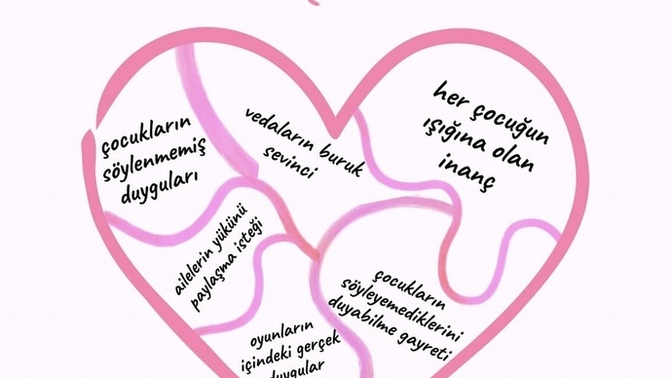 çocukların
söylenmemiş
duyguları
vedaların buruk
sevinci
her çocuğun
ışığına olan
inanç
ailelerin yükünü
paylaşma isteği
çocukların
söyleyemediklerini
duyabilme gayreti
oyunların
içindeki gerçek
duygular